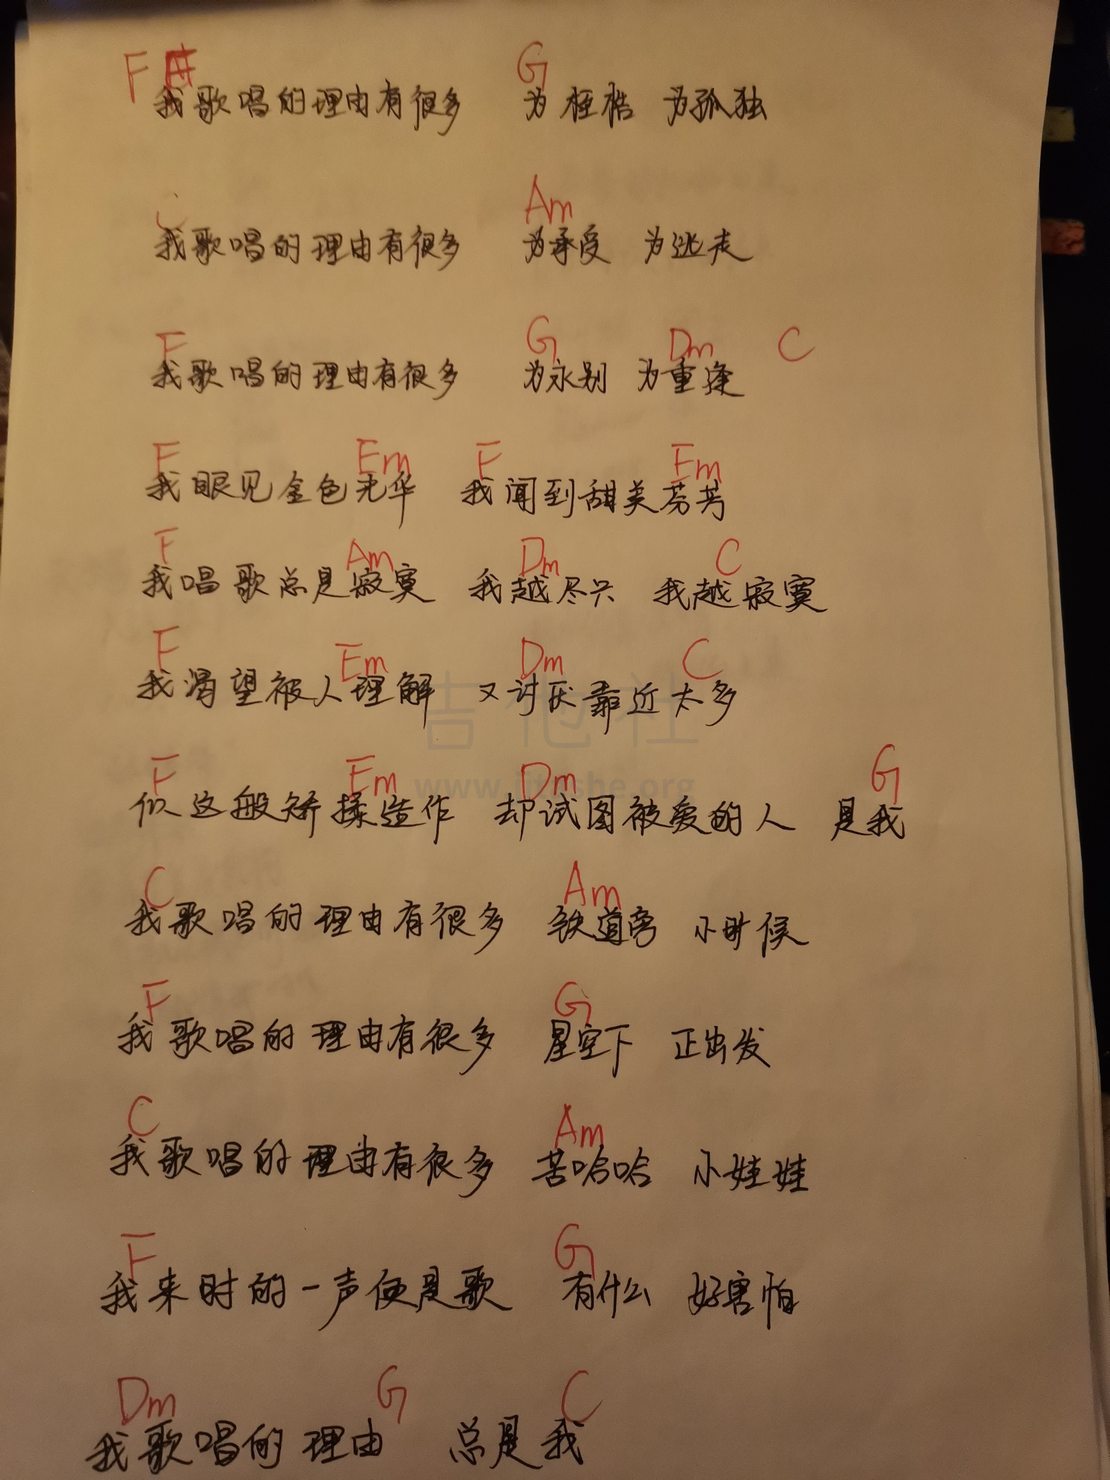 F G
我歌唱的理由有很多 为桎梏 为孤独
C Am
我歌唱的理由有很多 为承受 为逃走
F G Dm C
我歌唱的理由有很多 为永别 为重逢
F Em F Em
我眼见金色光华 我闻到甜美芬芳
F Am Dm C
我唱歌总是寂寞 我越尽兴 我越寂寞
F Em Dm C
我渴望被人理解 又讨厌靠近太多
吉他社
F Em Dm G
www.jitashe.org
似这般矫揉造作 却试图被爱的人 是我
C Am
我歌唱的理由有很多 铁道旁 小时候
F G
我歌唱的理由有很多 星空下 正出发
C Am
我歌唱的理由有很多 苦哈哈 小娃娃
F G
我来时的一声便是歌 有什么 好害怕
Dm G C
我歌唱的理由 总是我